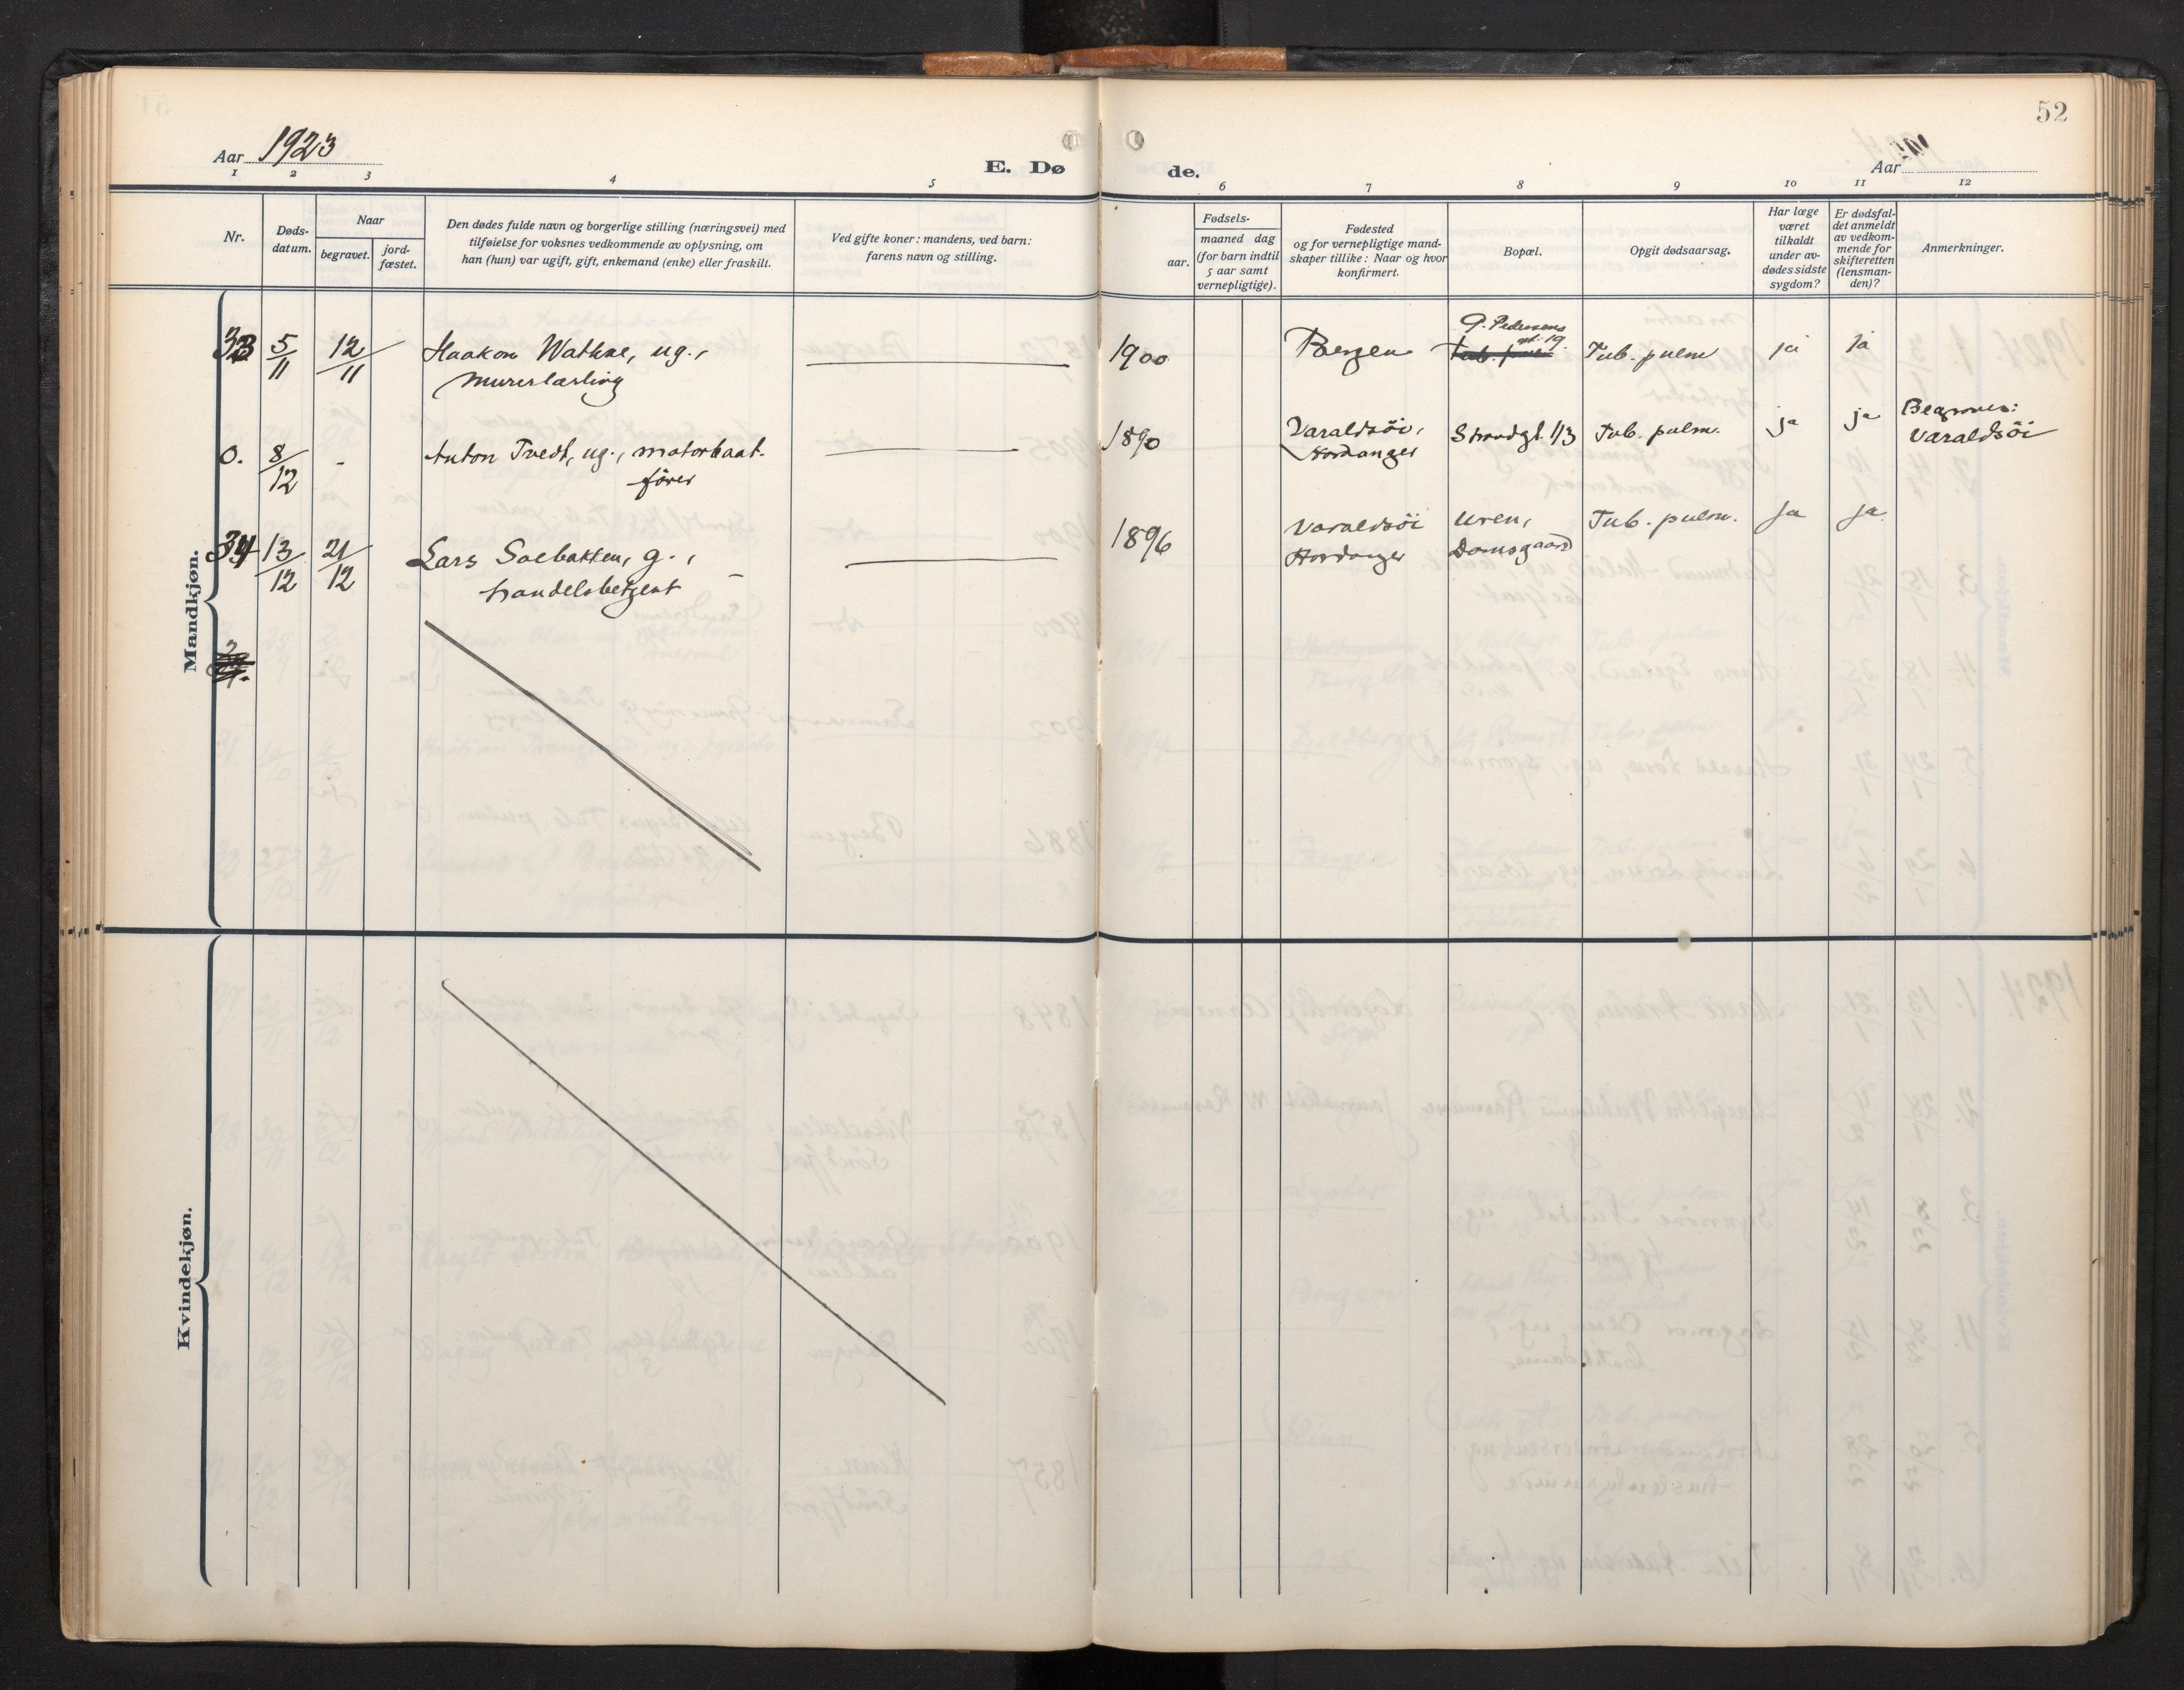 52
Aar 1923
E. Dø
de.
Aar
1 2 3 4 5 6 7 8 9 10 11 12
Nr.
Døds-
datum.
Naar
begravet.
jord-
fæstet.
Den dødes fulde navn og borgerlige stilling (næringsvei) med
tilføielse for voksnes vedkommende av oplysning, om
han (hun) var ugift, gift, enkemand (enke) eller fraskilt.
Ved gifte koner: mandens, ved barn:
farens navn og stilling.
Fødsels-
aar.
maaned dag
(for barn indtil
5 aar samt
vernepligtige).
Fødested
og for vernepligtige mand-
skaper tillike: Naar og hvor
konfirmert.
Bopæl.
Opgit dødsaarsag.
Har læge
været
tilkaldt
under av-
dødes sidste
sygdom?
Er dødsfal-
det anmeldt
av vedkom-
mende for
skifteretten
(lensman-
den)?
Anmerkninger.
Mandkjøn.
33 5/11 12/11 Haakon Wathne, ug.,
murerlærling
1900 Bergen P. Pedersens
gt. 19 Tub. pulm ja ja
0. 8/12 - Anton Tvedt, ug., motorbaat-
fører
1890 Varaldsöi,
Hordanger Strandgt. 113 Tub. pulm. ja ja Begraves:
Varaldsöi
34 13/12 21/12 Lars Solbakken, g.,
handelsbetjent
1896 Varaldsöi
Hardanger Uren,
Damsgaard Tub. pulm. ja ja
Kvindekjøn.